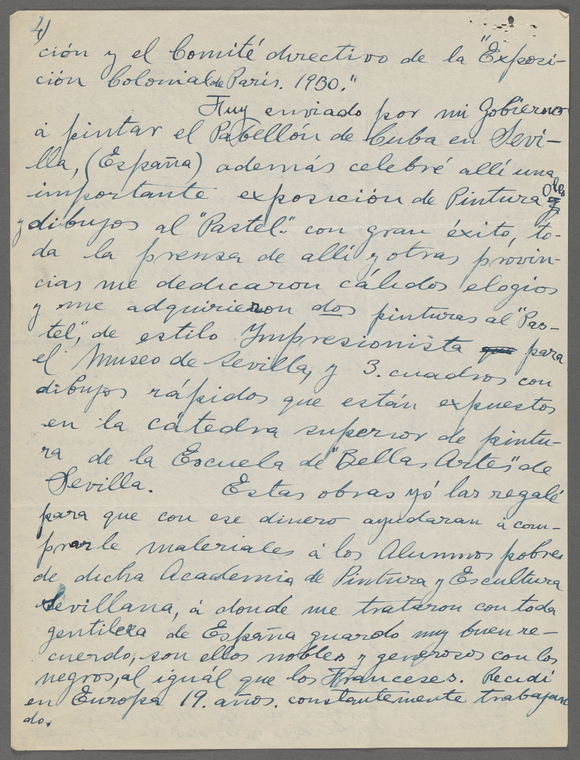 4)
ción y el Comité directivo de la "Exposi-
ción Colonial de París. 1930."
Fuy enviado por mi Gobierno
á pintar el Pabellón de Cuba en Sevi-
lla, (España) además celebré allí una
importante exposición de Pintura
y dibujos al "Pastel". con gran éxito, to-
da la prensa de alli y otras provin-
cias me dedicaron cálidos elogios
y me adquirieron dos pinturas al "Pas-
tel", de estilo Impresionista para
el Museo de Sevilla, y 3. cuadros con
dibujos rápidos que están expuestos
en la cátedra superior de pintu-
ra de la Escuela de "Bellas Artes" de
Sevilla. Estas obras yó las regalé
para que con ese dinero ayudaran á com-
prarle materiales á los Alumnos pobres
de dicha Academia de Pintura y Escultura
Sevillana, á donde me trataron con toda
gentileza de España guardo muy buen re-
cuerdo, son ellos nobles y generosos con los
negros, al igual que los Franceses. Recidí
en Europa 19. años. constantemente trabajan
do.